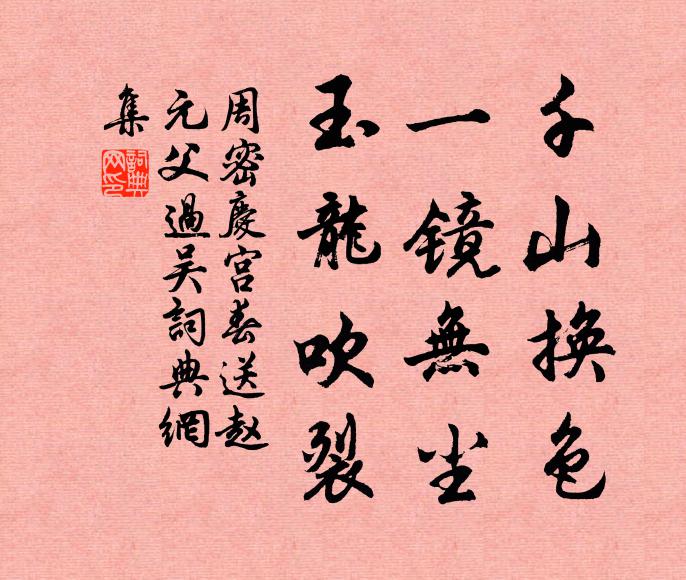 千山换色
一镜無尘
玉龍吹裂
周密慶宫春送赵
元父過吴詞典網
集
詞典
网印